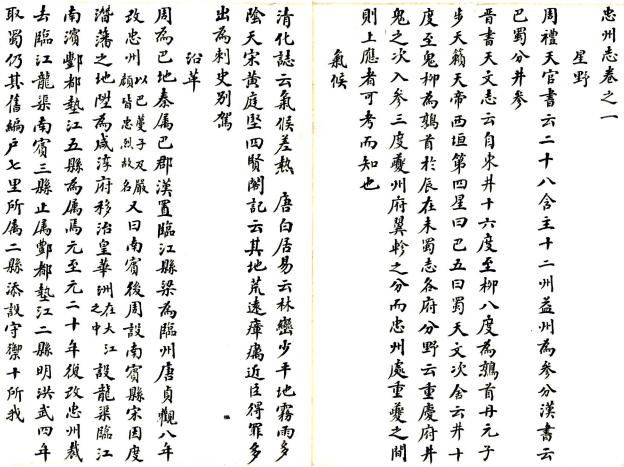 忠州志卷之一
星野
周禮天官書云二十八舍主十二州益州為參分漢書云
巴蜀分井參
晉書天文志云自東井十六度至柳八度為鶉首丹元子
步天籟天帝西垣第四星曰巴五曰蜀天文次舍云井十
度至鬼柳為鶉首於辰在未蜀志各府分野云重慶府井
鬼之次入參三度夔州府翼軫之分而忠州處重夔之間
則上應者可考而知也
氣候
清化誌云氣候差熱 唐白居易云林巒少平地霧雨多
陰天宋黃庭堅四賢閣記云其地荒遠瘴癘近臣得罪多
出為刺史別駕
沿革
周為巴地秦属巴郡漢置臨江縣梁為臨州唐貞觀八年
改忠州以巴蔓子及嚴顔皆忠烈故名又曰南賓後周設南賓縣宋因度
潛藩之地陞為咸淳府移治皇華洲在大江之中設龍渠臨江
南濱酆都墊江五縣為属焉元至元二十年復改忠州裁
去臨江龍渠南賓三縣止属酆都墊江二縣明洪武四年
取蜀仍其舊編戶七里所属二縣添設守禦十所我